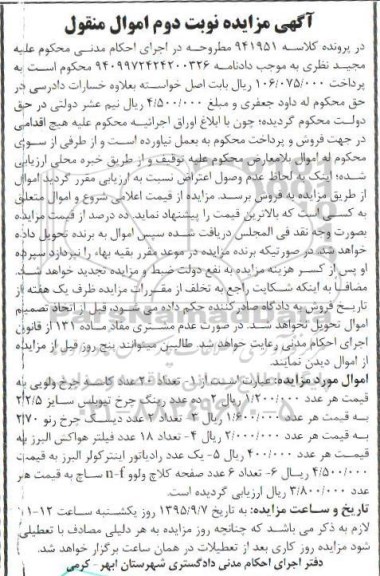 آگهی مزایده نوبت دوم اموال منقول
در پرونده کلاسه ۹۴۱۹۵۱ مطروحه در اجرای احکام مدنی محکوم علیه
مجید نظری به موجب دادنامه ۹۴۰۹۹۷۲۴۲۴۲۰۰۳۲۶ محکوم است به
پرداخت ۱۰۶/۰۷۵/۰۰۰ ریال بابت اصل خواسته بعلاوه خسارات دادرسی در
حق محکوم له داود جعفری و مبلغ ۴/۵۰۰/۰۰۰ ریال نیم عشر دولتی در حق
دولت محکوم گردیده؛ چون با ابلاغ اوراق اجرائیه محکوم علیه هیچ اقدامی
در جهت فروش و پرداخت محکوم به بعمل نیاورده است و از طرفی از سوی
محکوم له اموال بلامعارض محکوم علیه توقیف و از طریق خبره محلی ارزیابی
شده؛ اینک به لحاظ عدم وصول اعتراض نسبت به ارزیابی مقرر گردید اموال
از طریق مزایده به فروش برسد. مزایده از قیمت اعلامی شروع و اموال متعلق
به کسی است که بالاترین قیمت را پیشنهاد نماید. ده درصد از قیمت مزایده
بصورت وجه نقد فی المجلس دریافت شده سپس اموال به برنده تحویل داده
خواهد شد. در صورتیکه برنده مزایده در موعد مقرر بقیه بهاء را نپردازد سپرده
او پس از کسر هزینه مزایده به نفع دولت ضبط و مزایده تجدید خواهد شد.
مضافا به اینکه شکایت راجع به تخلف از مقررات مزایده ظرف یک هفته از
تاریخ فروش به دادگاه صادر کننده حکم داده می شود، قبل از اتخاذ تصمیم
اموال تحویل نخواهد شد. در صورت عدم مشتری مفاد ماده ۱۳۱ از قانون
اجرای احکام مدنی رعایت خواهد شد. طالبین میتوانند پنج روز قبل از مزایده
از اموال دیدن نمایند.
اموال مورد مزایده: عبارت است از ۱- تعداد ۲۰ عدد کاسه چرخ ولویی به
قیمت هر عدد ۱/۲۰۰/۰۰۰ ریال ۲- ده عدد رینگ چرخ تیوبلس سایز ۲۲/۵
به قیمت هر عدد ۱/۶۰۰/۰۰۰ ریال ۳- تعداد ۲ عدد دیسک چرخ رنو ۲۷۰
به قیمت هر عدد ۲/۰۰۰/۰۰۰ ریال ۴- تعداد ۱۸ عدد فیلتر هواکش البرز به
قیمت هر عدد ۴۰۰/۰۰۰ ریال ۵- یک عدد رادیاتور اینترکولر البرز به قیمت
۴/۵۰۰/۰۰۰ ریال ۶- تعداد ۶ عدد صفحه کلاچ ولوو n-f ساچ به قیمت هر
عدد ۳/۸۰۰/۰۰۰ ریال ارزیابی گردیده است.
تاریخ و ساعت مزایده: به تاریخ ۱۳۹۵/۹/۷ روز یکشنبه ساعت ۱۲-۱۱
لازم به ذکر می باشد که چنانچه روز مزایده به هر دلیلی مصادف با تعطیلی
شود مزایده روز کاری بعد از تعطیلات در همان ساعت برگزار خواهد شد.
دفتر اجرای احکام مدنی دادگستری شهرستان ابهر - کرمی
۰۲۱-۸۸۳۴۹۶۷۰-۵